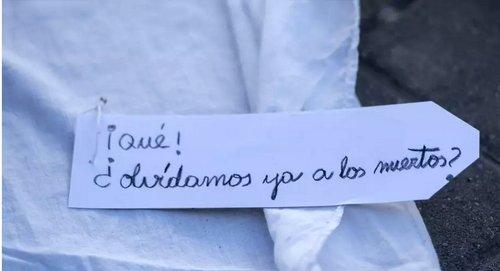 ¡Qué!
¿olvidamos ya a los muertos?